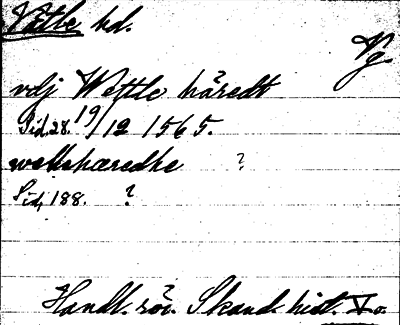 Vättle hd.
Vg
vdj Wettle häredt
Sid. 28. 19/12 1565.
wettshæredhe ?
Sid. 188. ?
Handl. rör. Skand. hist. Xo.